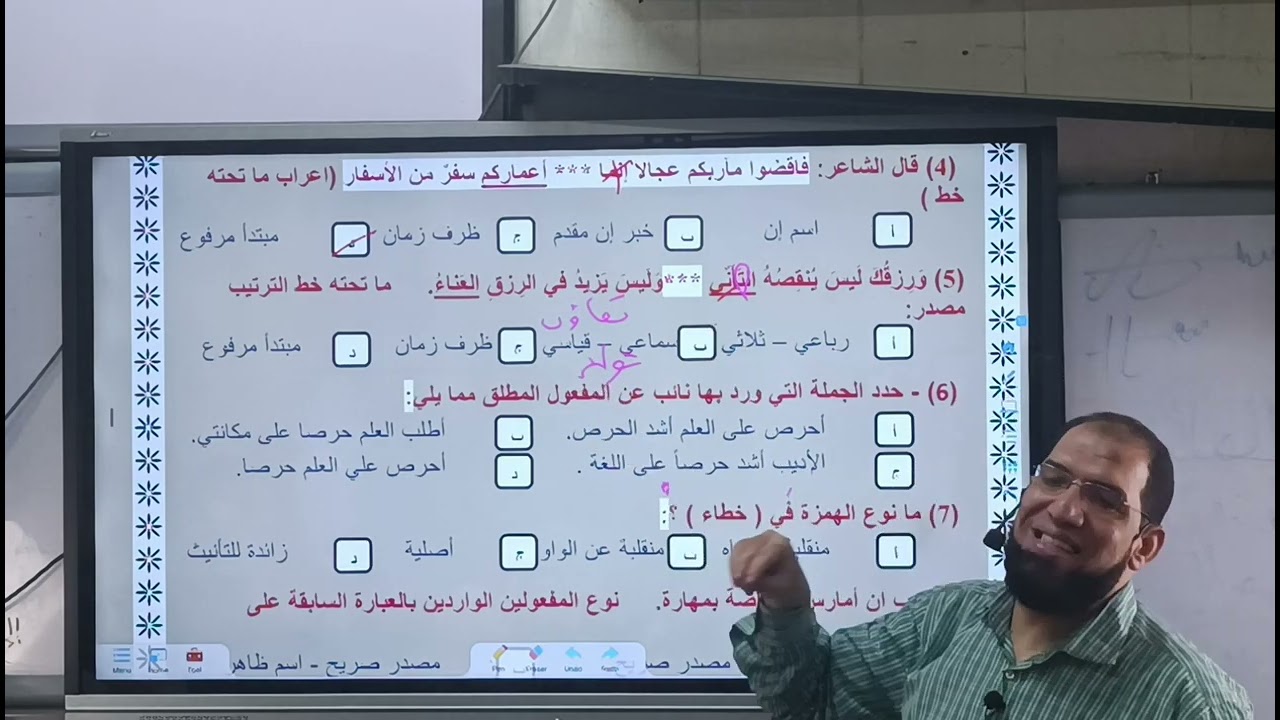 (4) قال الشاعر: فاقضوا مآربكم عجالا إنما *** أعماركم سفرٌ من الأسفار (اعراب ما تحته
خط )
أ اسم إن ب خبر إن مقدم ج ظرف زمان د مبتدأ مرفوع
(5) وَرِزقُكَ لَيسَ يُنقِصُهُ التأنّي *** وَلَيسَ يَزيدُ في الرِزقِ العَناءُ. ما تحته خط الترتيب
مصدر:
أ رباعي – ثلاثي ب سماعي – قياسي ج ظرف زمان د مبتدأ مرفوع
(6) - حدد الجملة التي ورد بها نائب عن المفعول المطلق مما يلي:
أ أحرص على العلم أشد الحرص. ب أطلب العلم حرصا على مكانتي.
ج الأديب أشد حرصاً على اللغة . د أحرص علي العلم حرصا.
(7) ما نوع الهمزة في ( خطاء ) ؟:
أ ب منقلبة عن الواو ج أصلية د زائدة للتأنيث
ان أمارس بمهارة. نوع المفعولين الواردين بالعبارة السابقة على
مصدر مصدر صريح - اسم ظاهر
Menu Home Tool Pen Eraser Undo